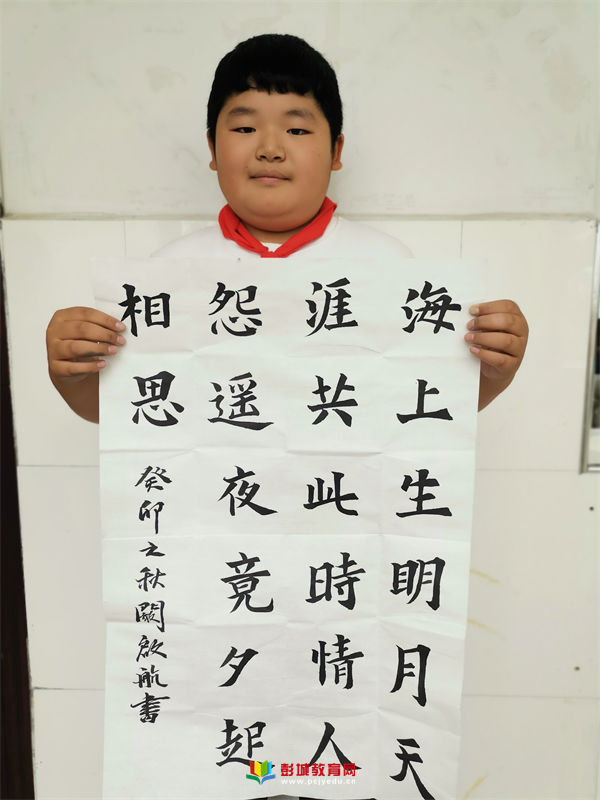 海上生明月天
涯共此時情人
怨遥夜竟夕起
相思
癸卯之秋啟航書
彭城教育网
www.pcjyedu.cn